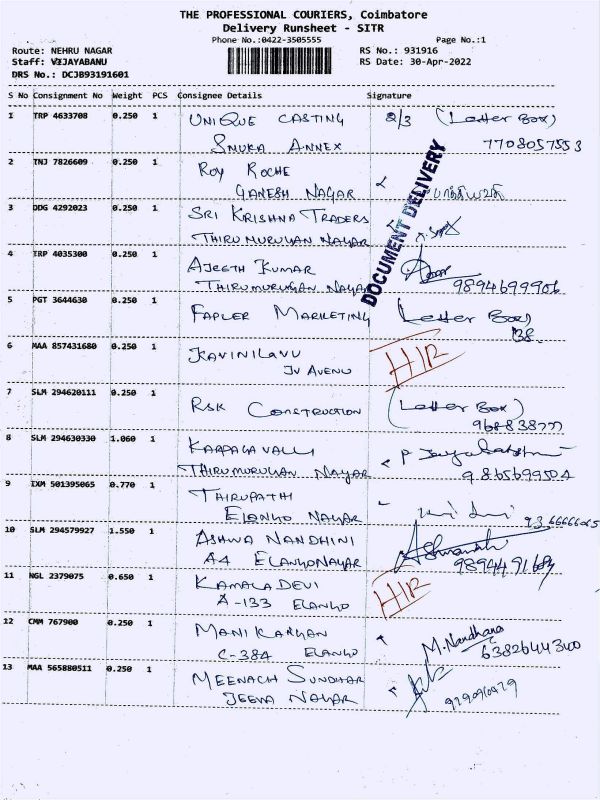 THE PROFESSIONAL COURIERS, Coimbatore
Delivery Runsheet - SITR
Phone No.:0422-3505555
Page No.:1
Route: NEHRU NAGAR
RS No.: 931916
Staff: VIJAYABANU
RS Date: 30-Apr-2022
DRS No.: DCJB93191601
S No Consignment No Weight PCS Consignee Details Signature
1 TRP 4633708 0.250 1 UNIQUE CASTING 2/3 (Letter Box)
SNUKA ANNEX 7708057553
2 TNJ 7826609 0.250 1 ROY ROCHE
GANESH NAGAR
DOCUMENT DELIVERY
3 DDG 4292023 0.250 1 SRI KRISHNA TRADERS
THIRUMURUGAN NAGAR
4 TRP 4035300 0.250 1 AJEETH KUMAR
THIRUMURUGAN NAGAR 9894699906
5 PGT 3644630 0.250 1 FAPLER MARKETING Letter Box
38.
6 MAA 857431680 0.250 1 KAVINILAVU HIR
JV AVENU
7 SLM 294620111 0.250 1 RSK CONSTRUCTION (Letter Box)
8 SLM 294630330 1.060 1 KARPAGAVALLI P
THIRUMURUGAN NAGAR 9865699504
9 IXM 501395065 0.770 1 THIRUPATHI
ELANGO NAGAR
10 SLM 294579927 1.550 1 ASHWA NANDHINI
A4 ELANGO NAGAR
11 NGL 2379075 0.650 1 KAMALA DEVI HIR
A-133 ELANGO
12 CMM 767900 0.250 1 MANIKANDAN M. Nandhana
C-384 ELANGO 6382644300
13 MAA 565880511 0.250 1 MEENACHI SUNDHAR
JEEVA NAGAR